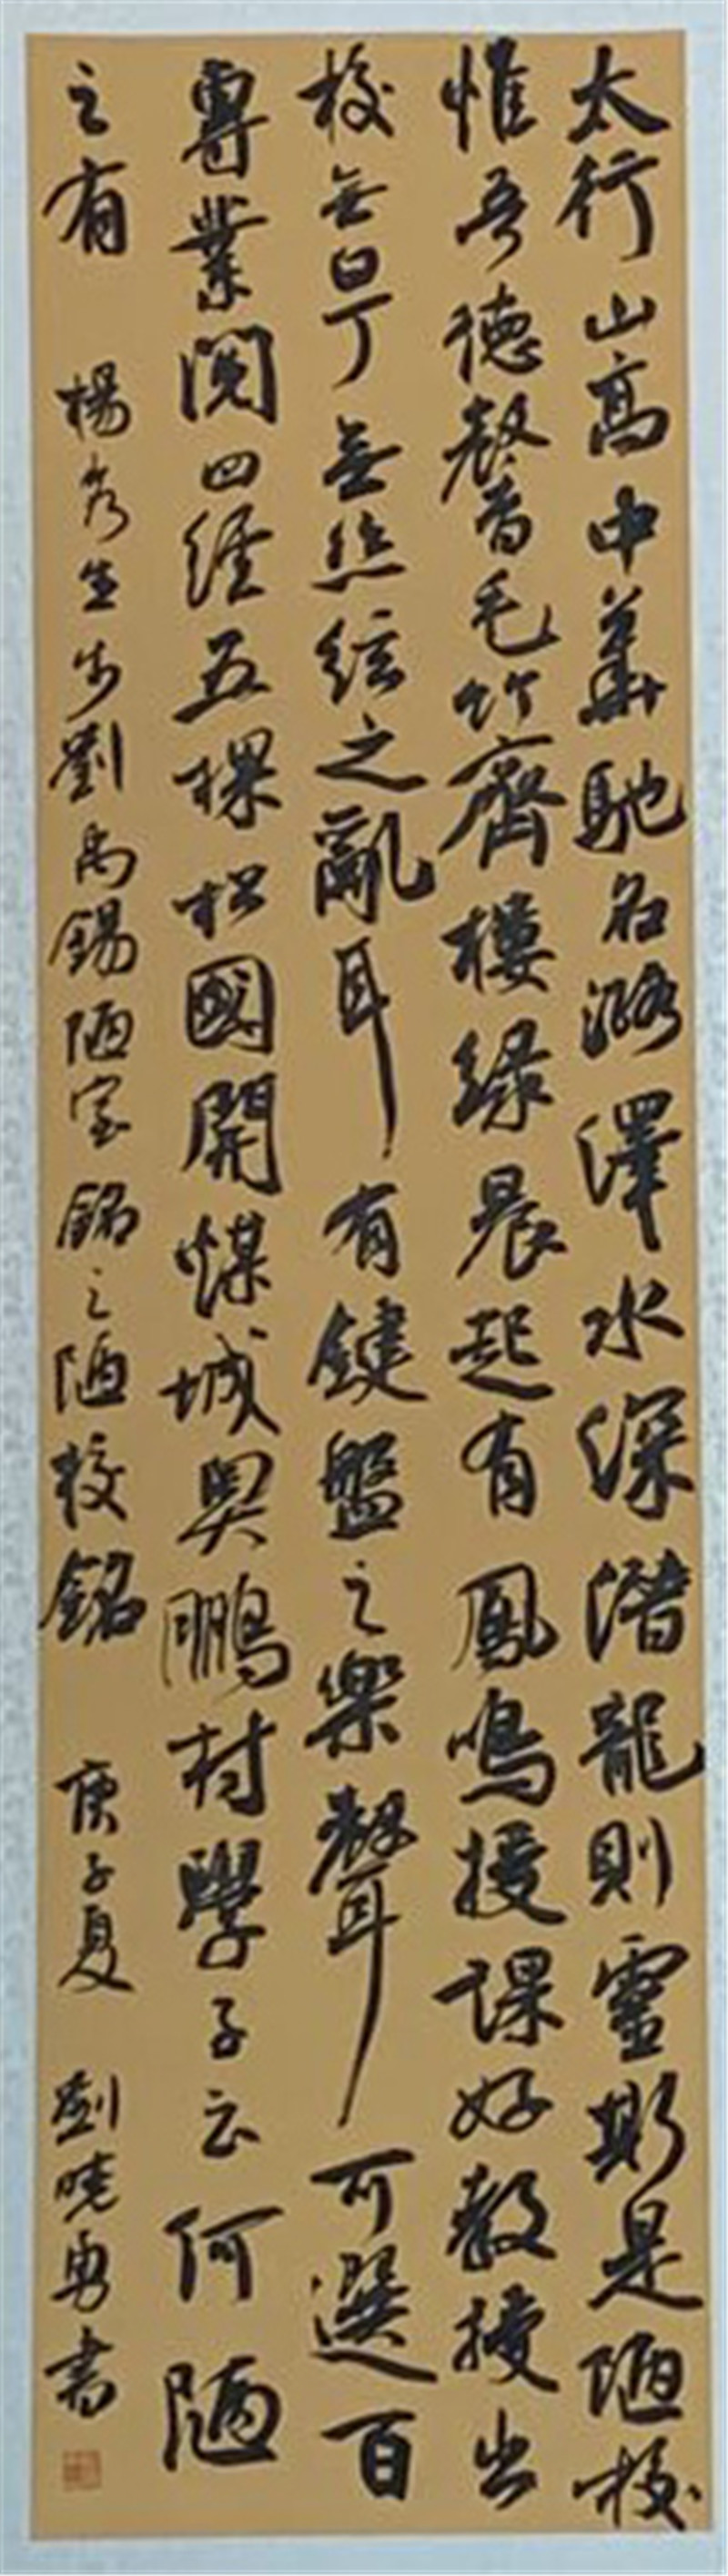 太行山高中華馳名潞澤水深潛龍則靈斯是陋校
惟吾德馨毛竹齊樓綠晨起有鳳鳴授課好教授出
校無白丁無絲絃之亂耳有鍵盤之樂聲可選百
專業閱四經五棵松國開煤城奧鵬村學子云何陋
之有 楊秀生步劉禹錫陋室銘之陋校銘 庚子夏 劉曉勇書